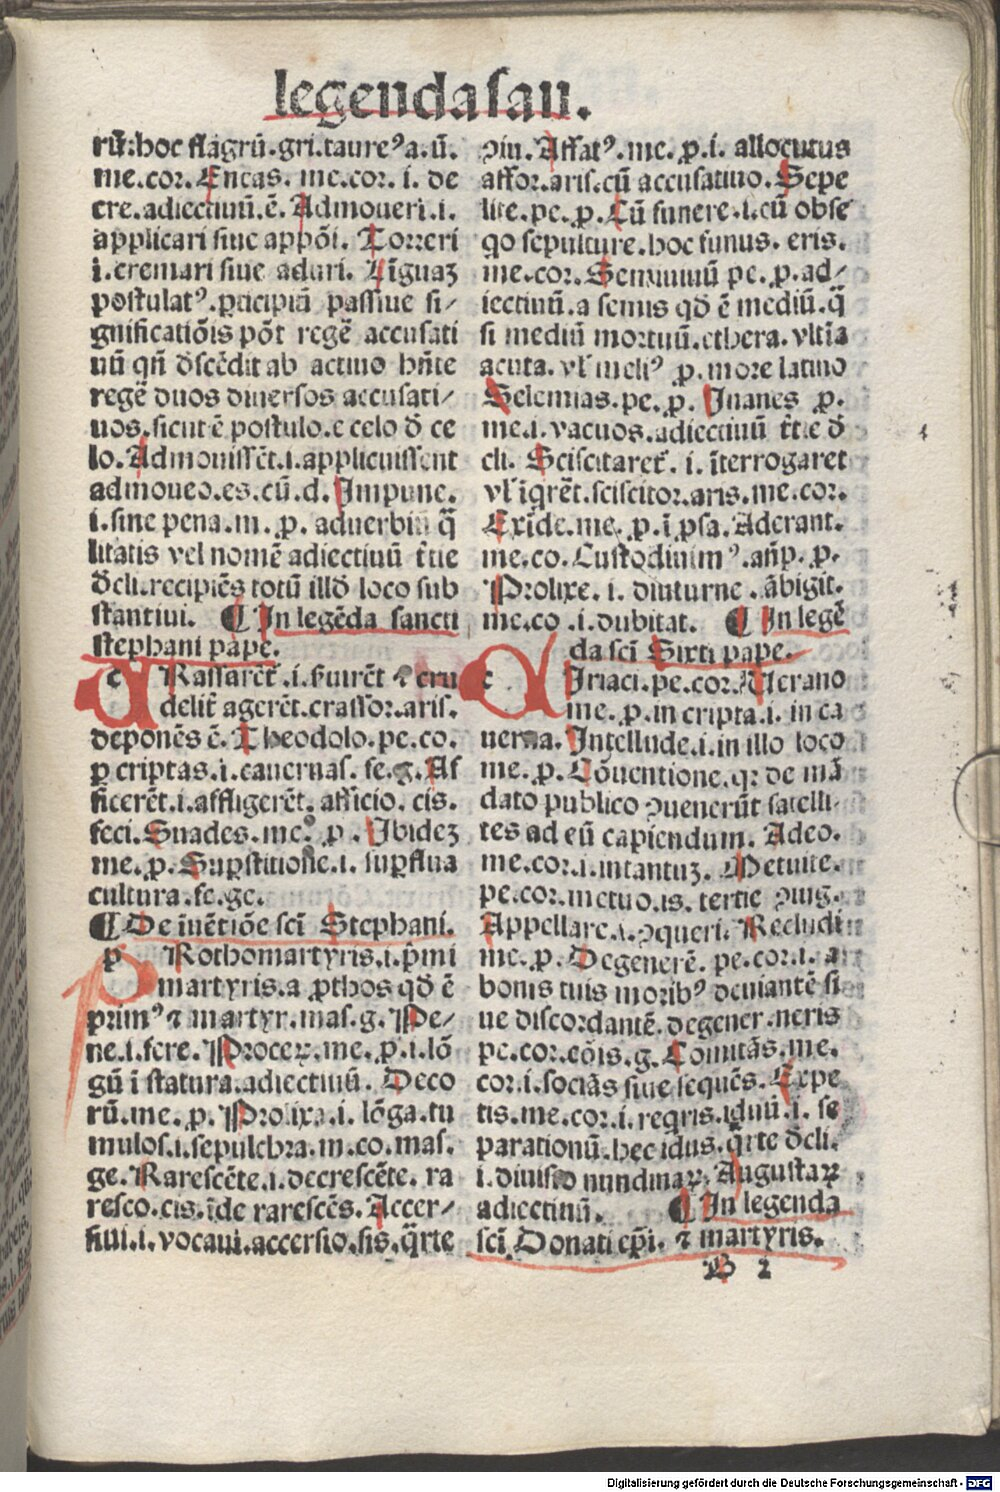 legenda sau.
rū:hoc flagrū.gri.taureꝰ a.ū.
me.cor. Eneas. me.cor. i. de
cre.adiectiuū.ē. Admoueri.i.
applicari siue appōi. Torreri
i.cremari siue aduri. Līguaꝫ
postulatꝰ.pticipiū passiue si/
gnificatiōis pōt regē accusati
uū qn̄ d̄scēdit ab actiuo hn̄te
regē duos diuersos accusati/
uos.sicut ē postulo.e celo d̄ ce
lo. Admouissēt.i.applicuissent
admoueo.es.cū.d. Impune.
i.sine pena.m. ꝓ. aduerbiū q̄
litatis vel nomē adiectiuū t̄tie
d̄cli.recipiēs totū illd̄ loco sub
stantiui. ¶ In legēda sancti
stephani pape.
c Rassarēt̄.i.fuirēt ⁊ cru
delit̄ agerēt.crassor.aris.
deponēs ē. Theodolo.pe.co.
ꝑ criptas.i.cauernas. fe.g. Af
ficerēt.i.affligerēt. afficio. cis.
feci. Suades. me. ꝓ. Ibideꝫ
me.ꝓ. Supstitione.i. supflua
cultura.fe.ge.
¶ De inuētiōe scī Stephani.
p Rothomartyris.i.pīmi
martyris.a ꝓthos qd̄ ē
primꝰ ⁊ martyr.mas.g. Pe/
ne.i.fere. Procer.me.ꝓ.i.lō
gū ī statura.adiectiuū. Deco
rū.me.ꝓ. Prolixa.i.lōga.tu
mulos.i.sepulchra.m.co.mas.
ge. Rarescēte.i.decrescēte. ra
resco.cis.īde rarescēs. Accer/
siui.i.vocaui.accersio.sis.q̄rte
ꝯiu. Affatꝰ.me.ꝓ.i. allocutus
affor.aris.cū accusatiuo. Sepe
lite.pe.ꝓ. Cū funere.i.cū obse
qo sepulture.hoc funus. eris.
me.cor. Semiuiuū pe.ꝓ.ad/
iectiuū.a semis qd̄ ē mediū.q̄
si mediū mortuū.ethera. vltīa
acuta. vl̄ meliꝰ ꝓ.more latino
Selemias.pe.ꝓ. Inanes ꝓ.
me.i. vacuos.adiectiuū t̄tie d̄
cli. Sciscitaret̄. i. īterrogaret
vl̄ īqrēt.sciscitor.aris.me.cor.
Exīde.me.ꝓ.i p̄sa. Aderant.
me.co. Custodiuimꝰ.an̄p.ꝓ.
Prolixe.i. diuturne.ābigit.
me.co.i.dubitat. ¶ In legē
da scī Sixti pape.
c Iriaci.pe.cor. Verano
me.ꝓ.in cripta.i. in ca
uerna. Intellude.i.in illo loco
me.ꝓ. Cōuentione.qꝛ de mā
dato publico ꝯuenerūt satelli
tes ad eū capiendum. Adeo.
me.cor.i.intantuꝫ. Metuite.
pe.cor.metuo.is. tertie ꝯiug.
Appellare.i.ꝯqueri. Recludi
me.ꝓ. Degenerē. pe.cor.i. a
bonis tuis moribꝰ deuiantē si
ue discordantē.degener.neris
pe.cor.cōis.g. Comitās.me.
cor.i.sociās siue sequēs. Expe
tis.me.cor.i.reqris.iduū.i. se
parationū.hec idus.q̄rte d̄cli.
i.diuisio nundinaꝝ. Augustaꝝ
adiectiuū. ¶ In legenda
scī Donati epī. ⁊ martyris.
B 2
Digitalisierung gefördert durch die Deutsche Forschungsgemeinschaft - DFG